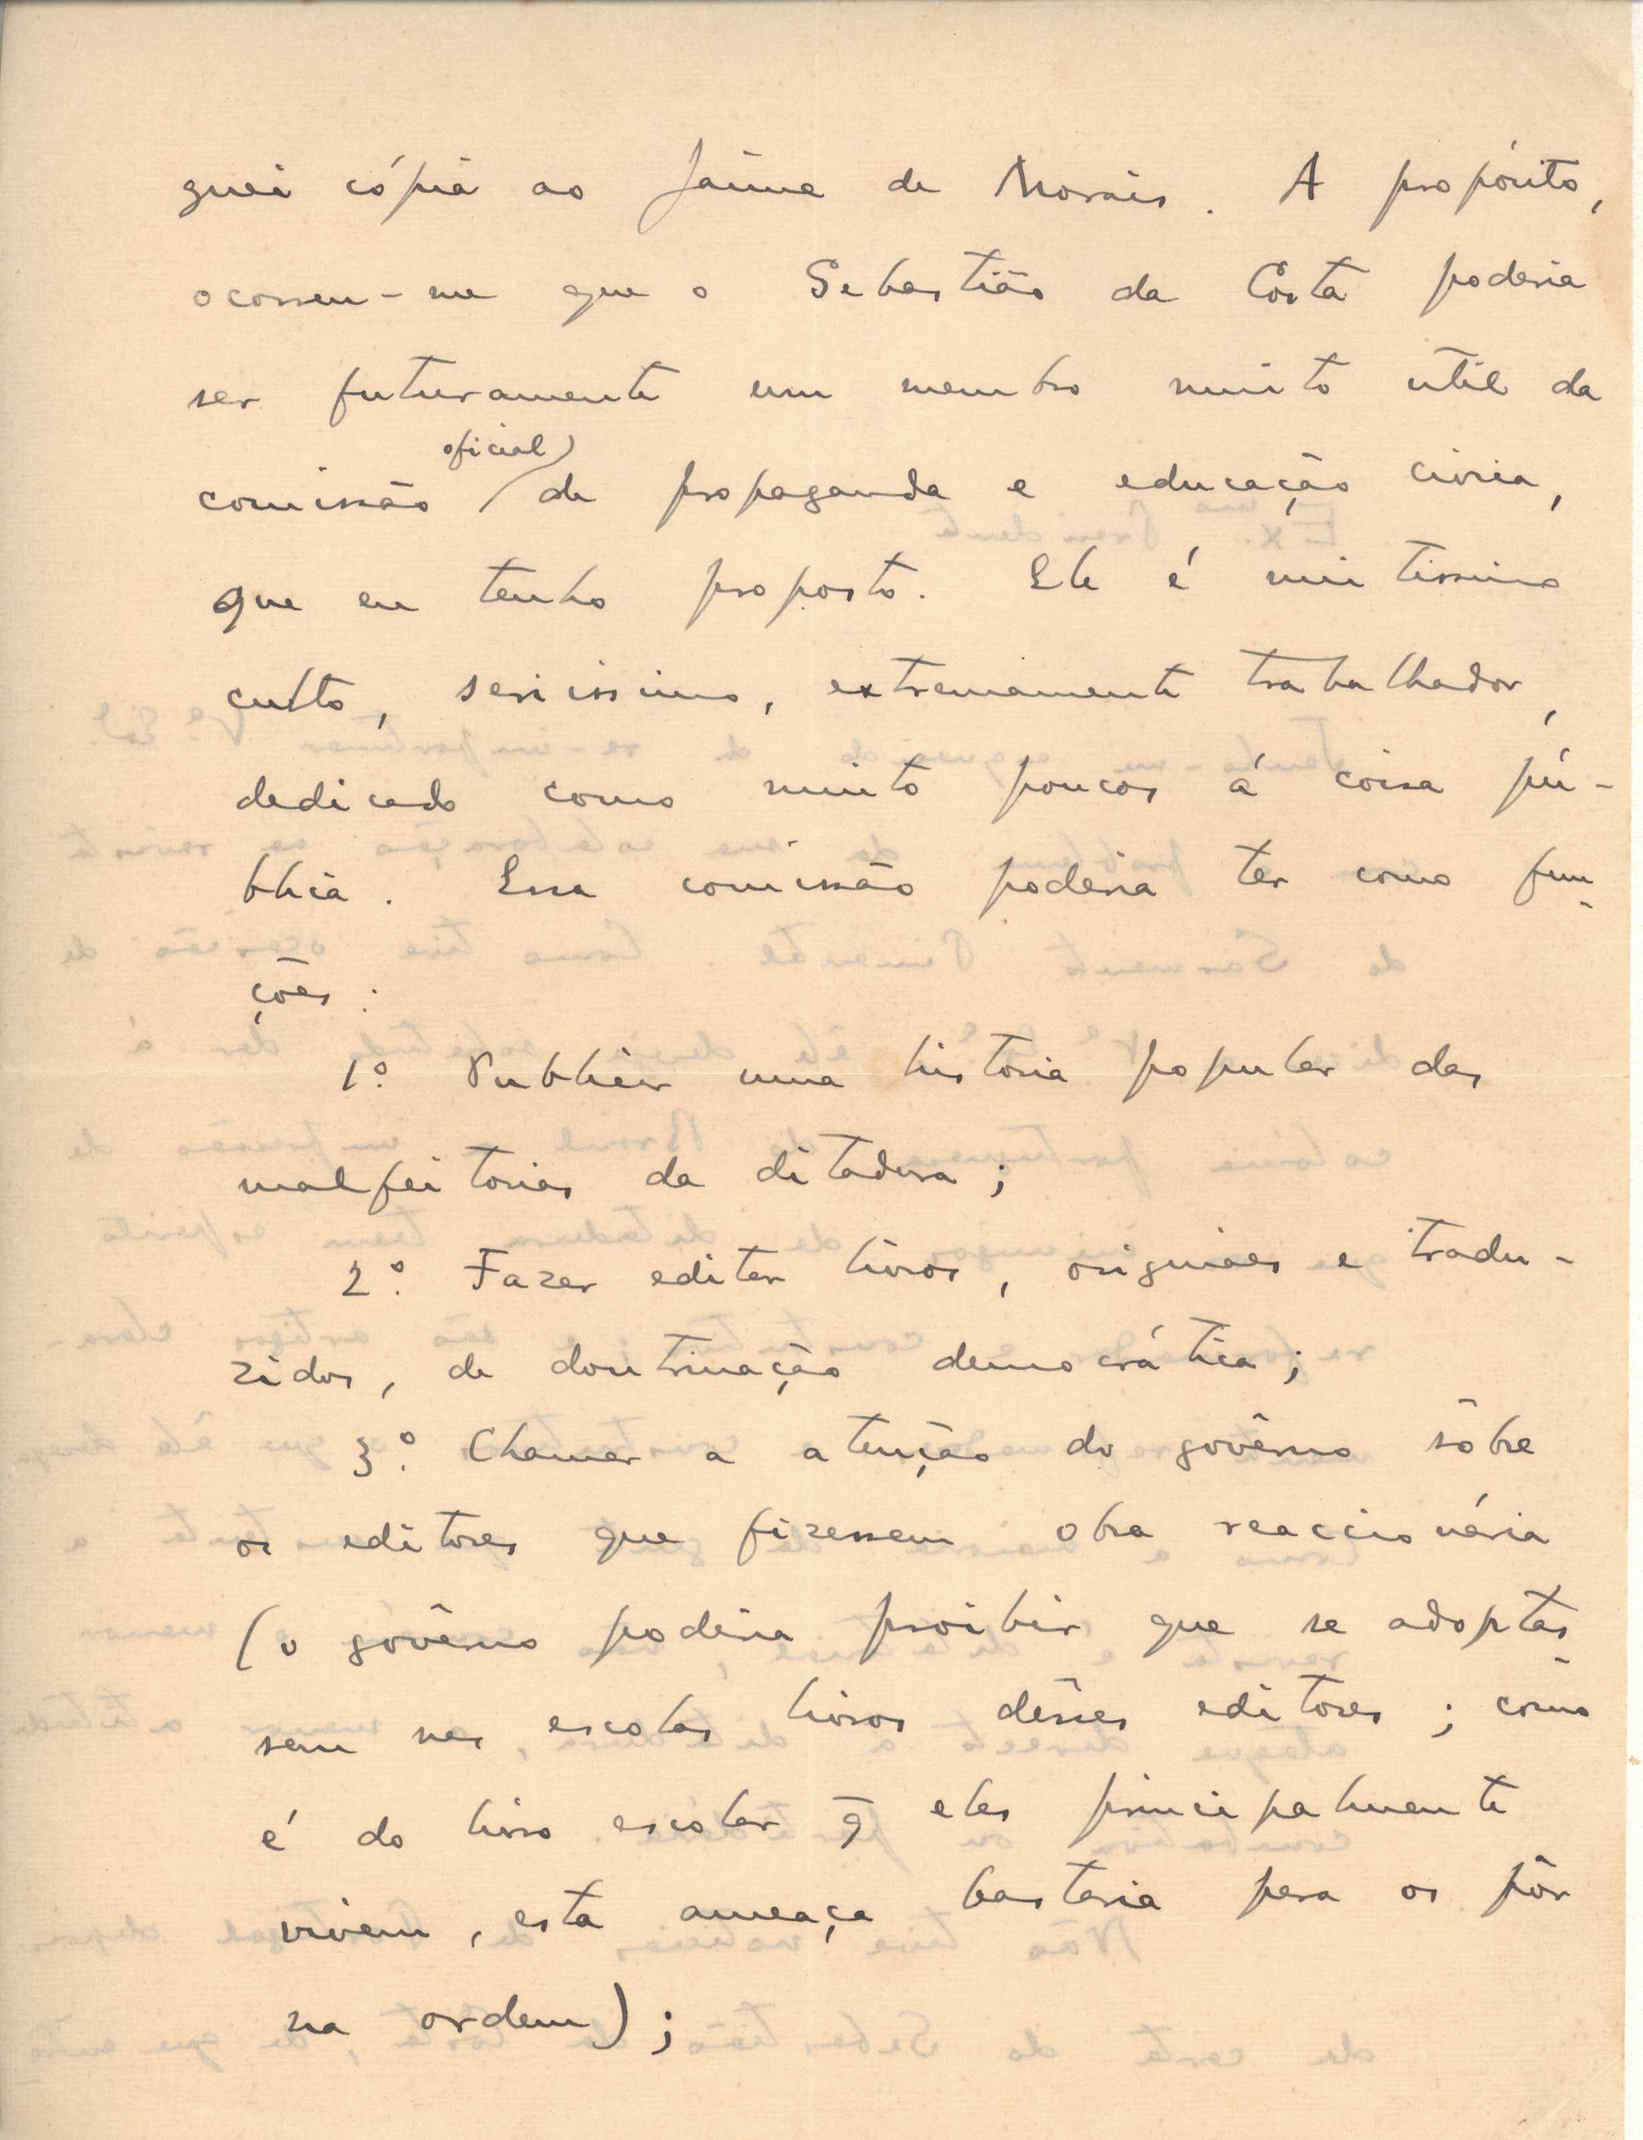 guei cópia ao Jaime de Morais. A propósito,
ocorreu-me que o Sebastião da Costa poderia
ser futuramente um membro muito util da
comissão oficial de propaganda e educação civica,
que eu tenho proposto. Ele é muitissimo
culto, seriissimo, extremamente trabalhador,
dedicado como muito poucos á coisa pú-
blica. Essa comissão poderia ter como fun-
ções:
1.º Publicar uma historia popular das
malfeitorias da ditadura;
2.º Fazer editar livros, originaes e tradu-
zidos, de doutrinação democrática;
3.º Chamar a atenção do govêrno sôbre
os editores que fizessem obra reaccionária
(o govêrno poderia proibir que se adoptas-
sem nas escolas livros dêsses editores; como
é do livro escolar q̄ eles principalmente
vivem, esta ameaça bastaria para os pôr
na ordem);